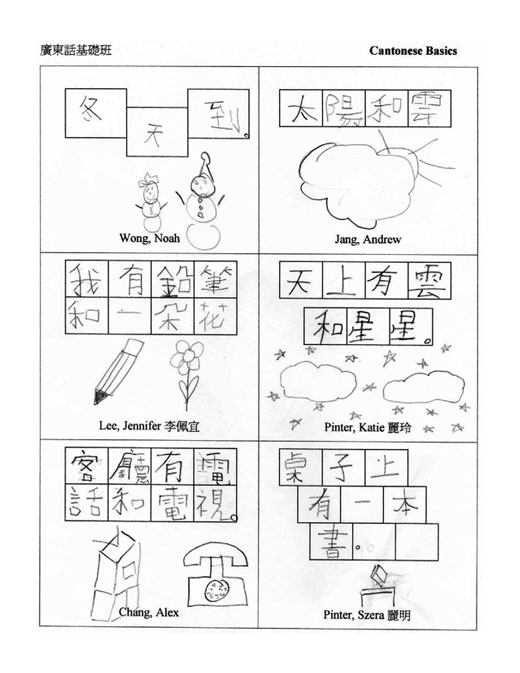 廣東話基礎班 Cantonese Basics
冬天到。
Wong, Noah
太陽和雲
Jang, Andrew
我有鉛筆
和一朵花
Lee, Jennifer 李佩宜
天上有雲
和星星。
Pinter, Katie 麗玲
客廳有電
話和電視。
Chang, Alex
桌子上
有一本
書。
Pinter, Szera 麗明